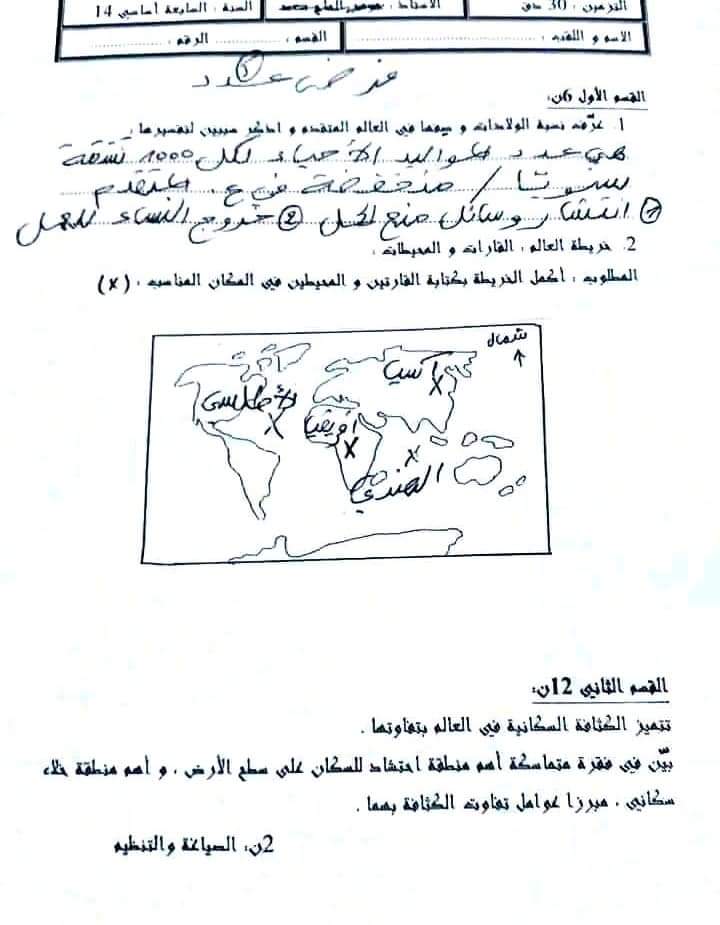 التوقيت : 30 دق
السنة : السابعة أساسي 14
الاسم و اللقب :
القسم :
الرقم :
فرض عدد
القسم الأول 6ن:
1. عرّف نسبة الولادات و صفها في العالم المتقدم و اذكر سببين لتفسيرها .
هي عدد المواليد الأحياء لكل 1000 نسمة
سنويّا / منخفضة في ع. المتقدم
① انتشار وسائل منع الحمل ② خروج النساء للعمل
2. خريطة العالم : القارات و المحيطات :
المطلوب : أكمل الخريطة بكتابة القارتين و المحيطين في المكان المناسب : (x)
شمال
آسيا
x
الأطلسي
x
افريقيا
x
x
الهندي
القسم الثاني 12ن:
تتميز الكثافة السكانية في العالم بتفاوتها .
بيّن في فقرة متماسكة أهم منطقة احتشاد للسكان على سطح الأرض ، و أهم منطقة خلاء
سكاني ، مبرزا عوامل تفاوت الكثافة بهما .
2ن: الصياغة والتنظيم